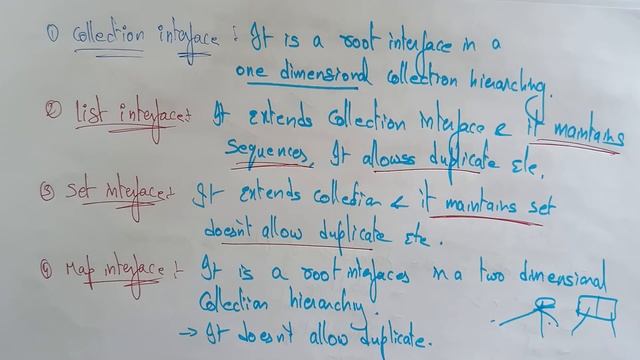 ① Collection interface : It is a root interface in a
one dimensional collection hierarching.
② List interface :- It extends Collection interface & it maintains
Sequences, It allowss duplicate Ele.
③ Set interface :- It extends collection & it maintains set
doesn't allow duplicate Ele.
④ Map interface :- It is a root interfaces in a two dimensional
Collection hierarchy.
→ It doesn't allow duplicate.